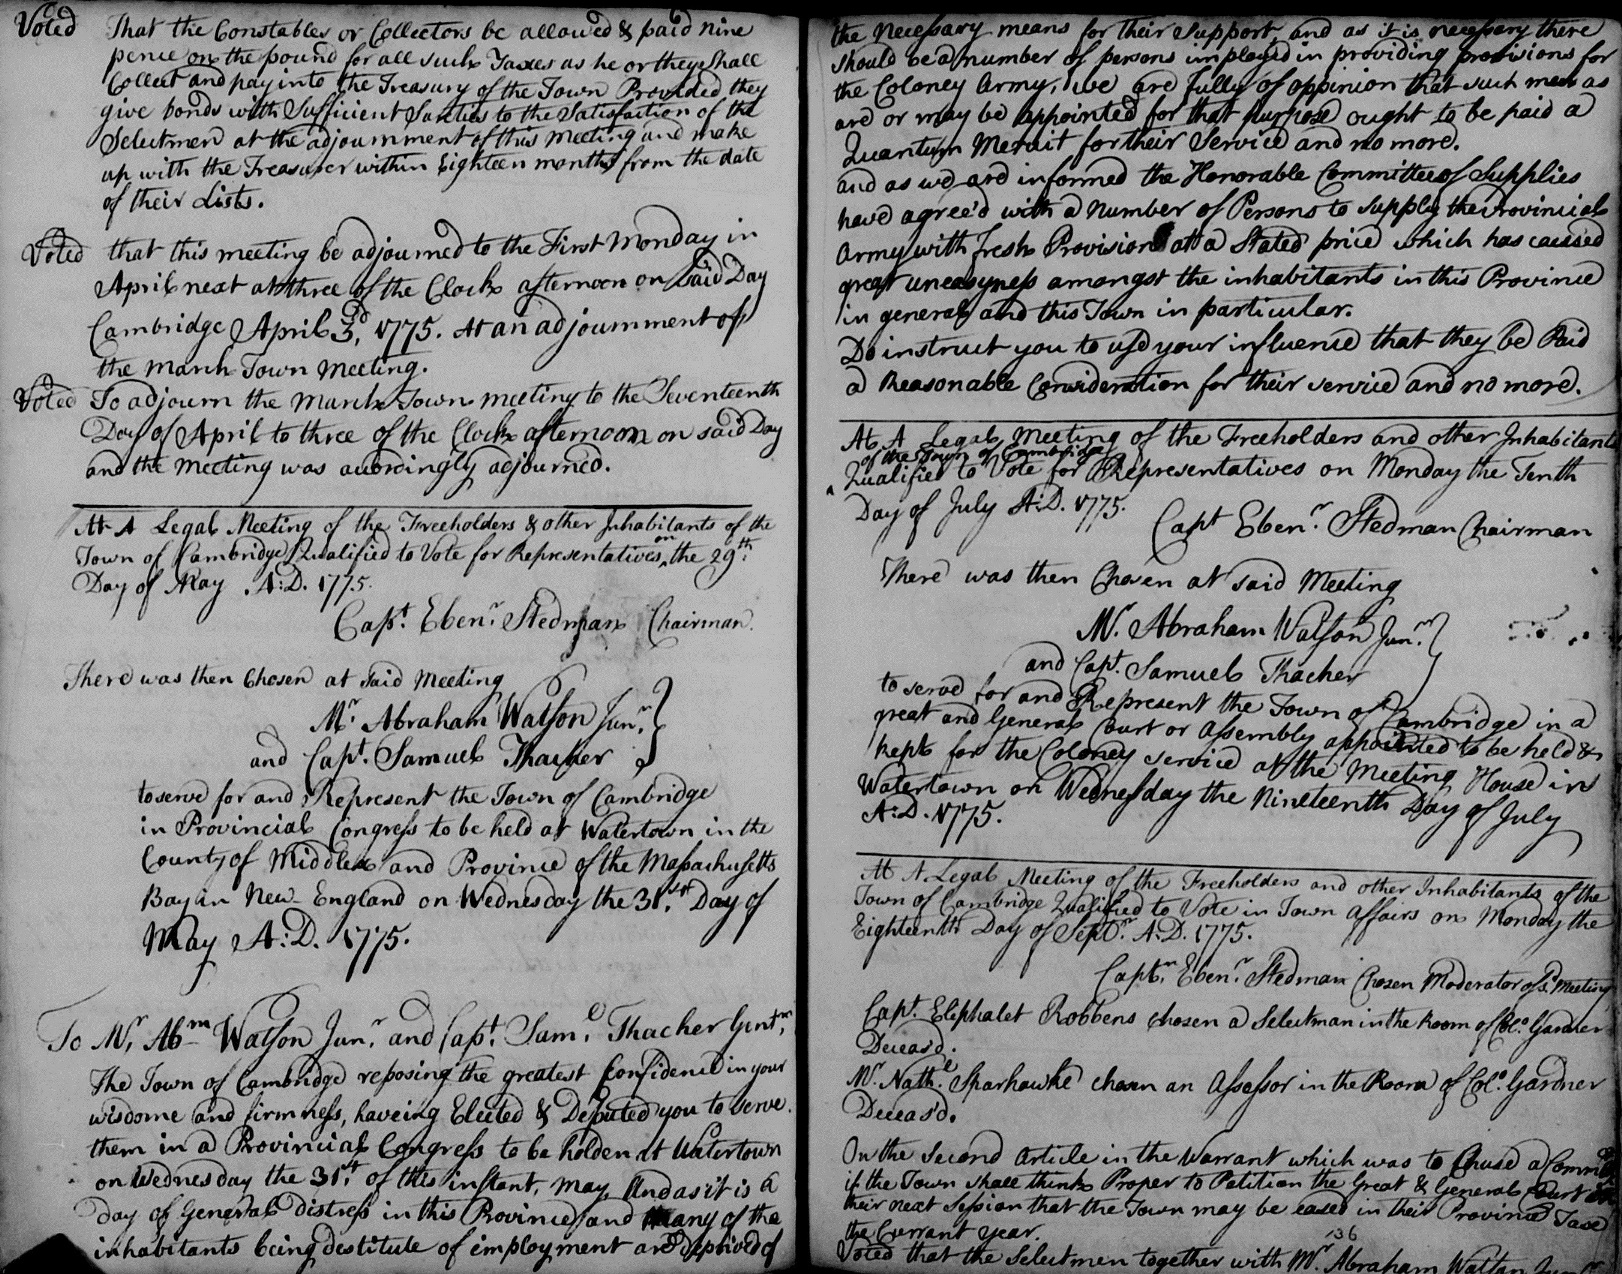 Voted That the Constables or Collectors be allowed & paid nine
pence on the pound for all such Taxes as he or they Shall
Collect and pay into the Treasury of the Town Provided they
give bonds with Sufficient Sureties to the Satisfaction of the
Selectmen at the adjournment of this Meeting and make
up with the Treasurer within Eighteen months from the date
of their Lists.
Voted that this meeting be adjourned to the First Monday in
April next at three of the Clock afternoon on Said Day
Cambridge April 3d, 1775. At an adjournment of
the March Town Meeting.
Voted To adjourn the March Town meeting to the Seventeenth
Day of April to three of the Clock afternoon on said Day
and the Meeting was accordingly adjourned.
At A Legal Meeting of the Freeholders & other Inhabitants of the
Town of Cambridge Qualified to Vote for Representatives on the 29th:
Day of May A:D. 1775.
Capt. Ebenr. Stedman Chairman.
There was then Chosen at said Meeting
Mr. Abraham Watson Junr.
and Capt. Samuel Thacher
to serve for and Represent the Town of Cambridge
in Provincial Congress to be held at Watertown in the
County of Middlex and Province of the Massachusetts
Bay in New-England on Wednesday the 31st. Day of
May A:D. 1775.
To Mr. Abm Watson Junr. and Capt. Saml. Thacher Gentn.
The Town of Cambridge reposing the greatest Confidence in your
wisdome and firmness, haveing Elected & Deputed you to serve
them in a Provincial Congress to be holden at Watertown
on Wednesday the 31st. of this instant, May, And as it is a
day of General distress in this Province and many of the
inhabitants being destitute of employment and deprived of
the necessary means for their Support and as it is necessary there
should be a number of persons imployed in providing provisions for
the Coloney Army, we are fully of oppinion that such men as
are or may be appointed for that purpose ought to be paid a
Quantum Meruit for their Service and no more.
and as we are informed the Honorable Committee of Supplies
have agree'd with a Number of Persons to supply the Provincial
Army with fresh Provision at a Stated price which has caused
great uneasyness amongst the inhabitants in this Province
in general and this Town in particular.
Do instruct you to use your influence that they be Paid
a Reasonable Consideration for their service and no more.
At A Legal Meeting of the Freeholders and other Inhabitants
of the Town of Cambridge
Qualified to Vote for Representatives on Monday the Tenth
Day of July A:D. 1775.
Capt Ebenr. Stedman Chairman
There was then Chosen at said Meeting
Mr. Abraham Watson Junr.
and Capt. Samuel Thacher
to serve for and Represent the Town of Cambridge in a
great and General Court or Assembly appointed to be held &
kept for the Coloney service at the Meeting House in
Watertown on Wednesday the Nineteenth Day of July
A:D. 1775.
At A Legal Meeting of the Freeholders and other Inhabitants of the
Town of Cambridge Qualified to Vote in Town affairs on Monday the
Eighteenth Day of Septr. A:D. 1775.
Captn. Ebenr. Stedman Chosen Moderator of sd. Meeting
Capt. Eliphalet Robbens chosen a Selectman in the Room of Colo. Gardner
Deceas'd.
Mr. Nathl. Sparhawke chosen an Assessor in the Room of Colo. Gardner
Deceas'd.
On the Second Article in the Warrant which was to Chuse a
if the Town shall think Proper to Petition the Great & General Court
their next Session that the Town may be eased in their Province Taxe
the Currant year.
136
Voted that the Selectmen together with Mr. Abraham Watson